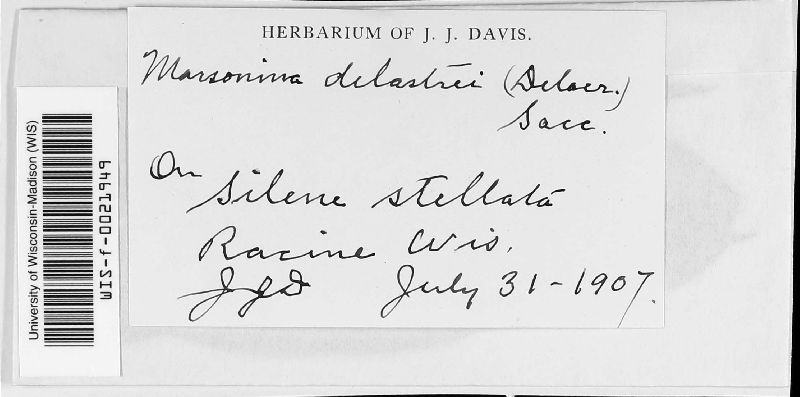 HERBARIUM OF J. J. DAVIS.
Marsonina delastrei (Delacr.)
Sacc.
On
Silene stellata
Racine Wis.
JJD July 31-1907.
University of Wisconsin-Madison (WIS)
WIS-f-0021949